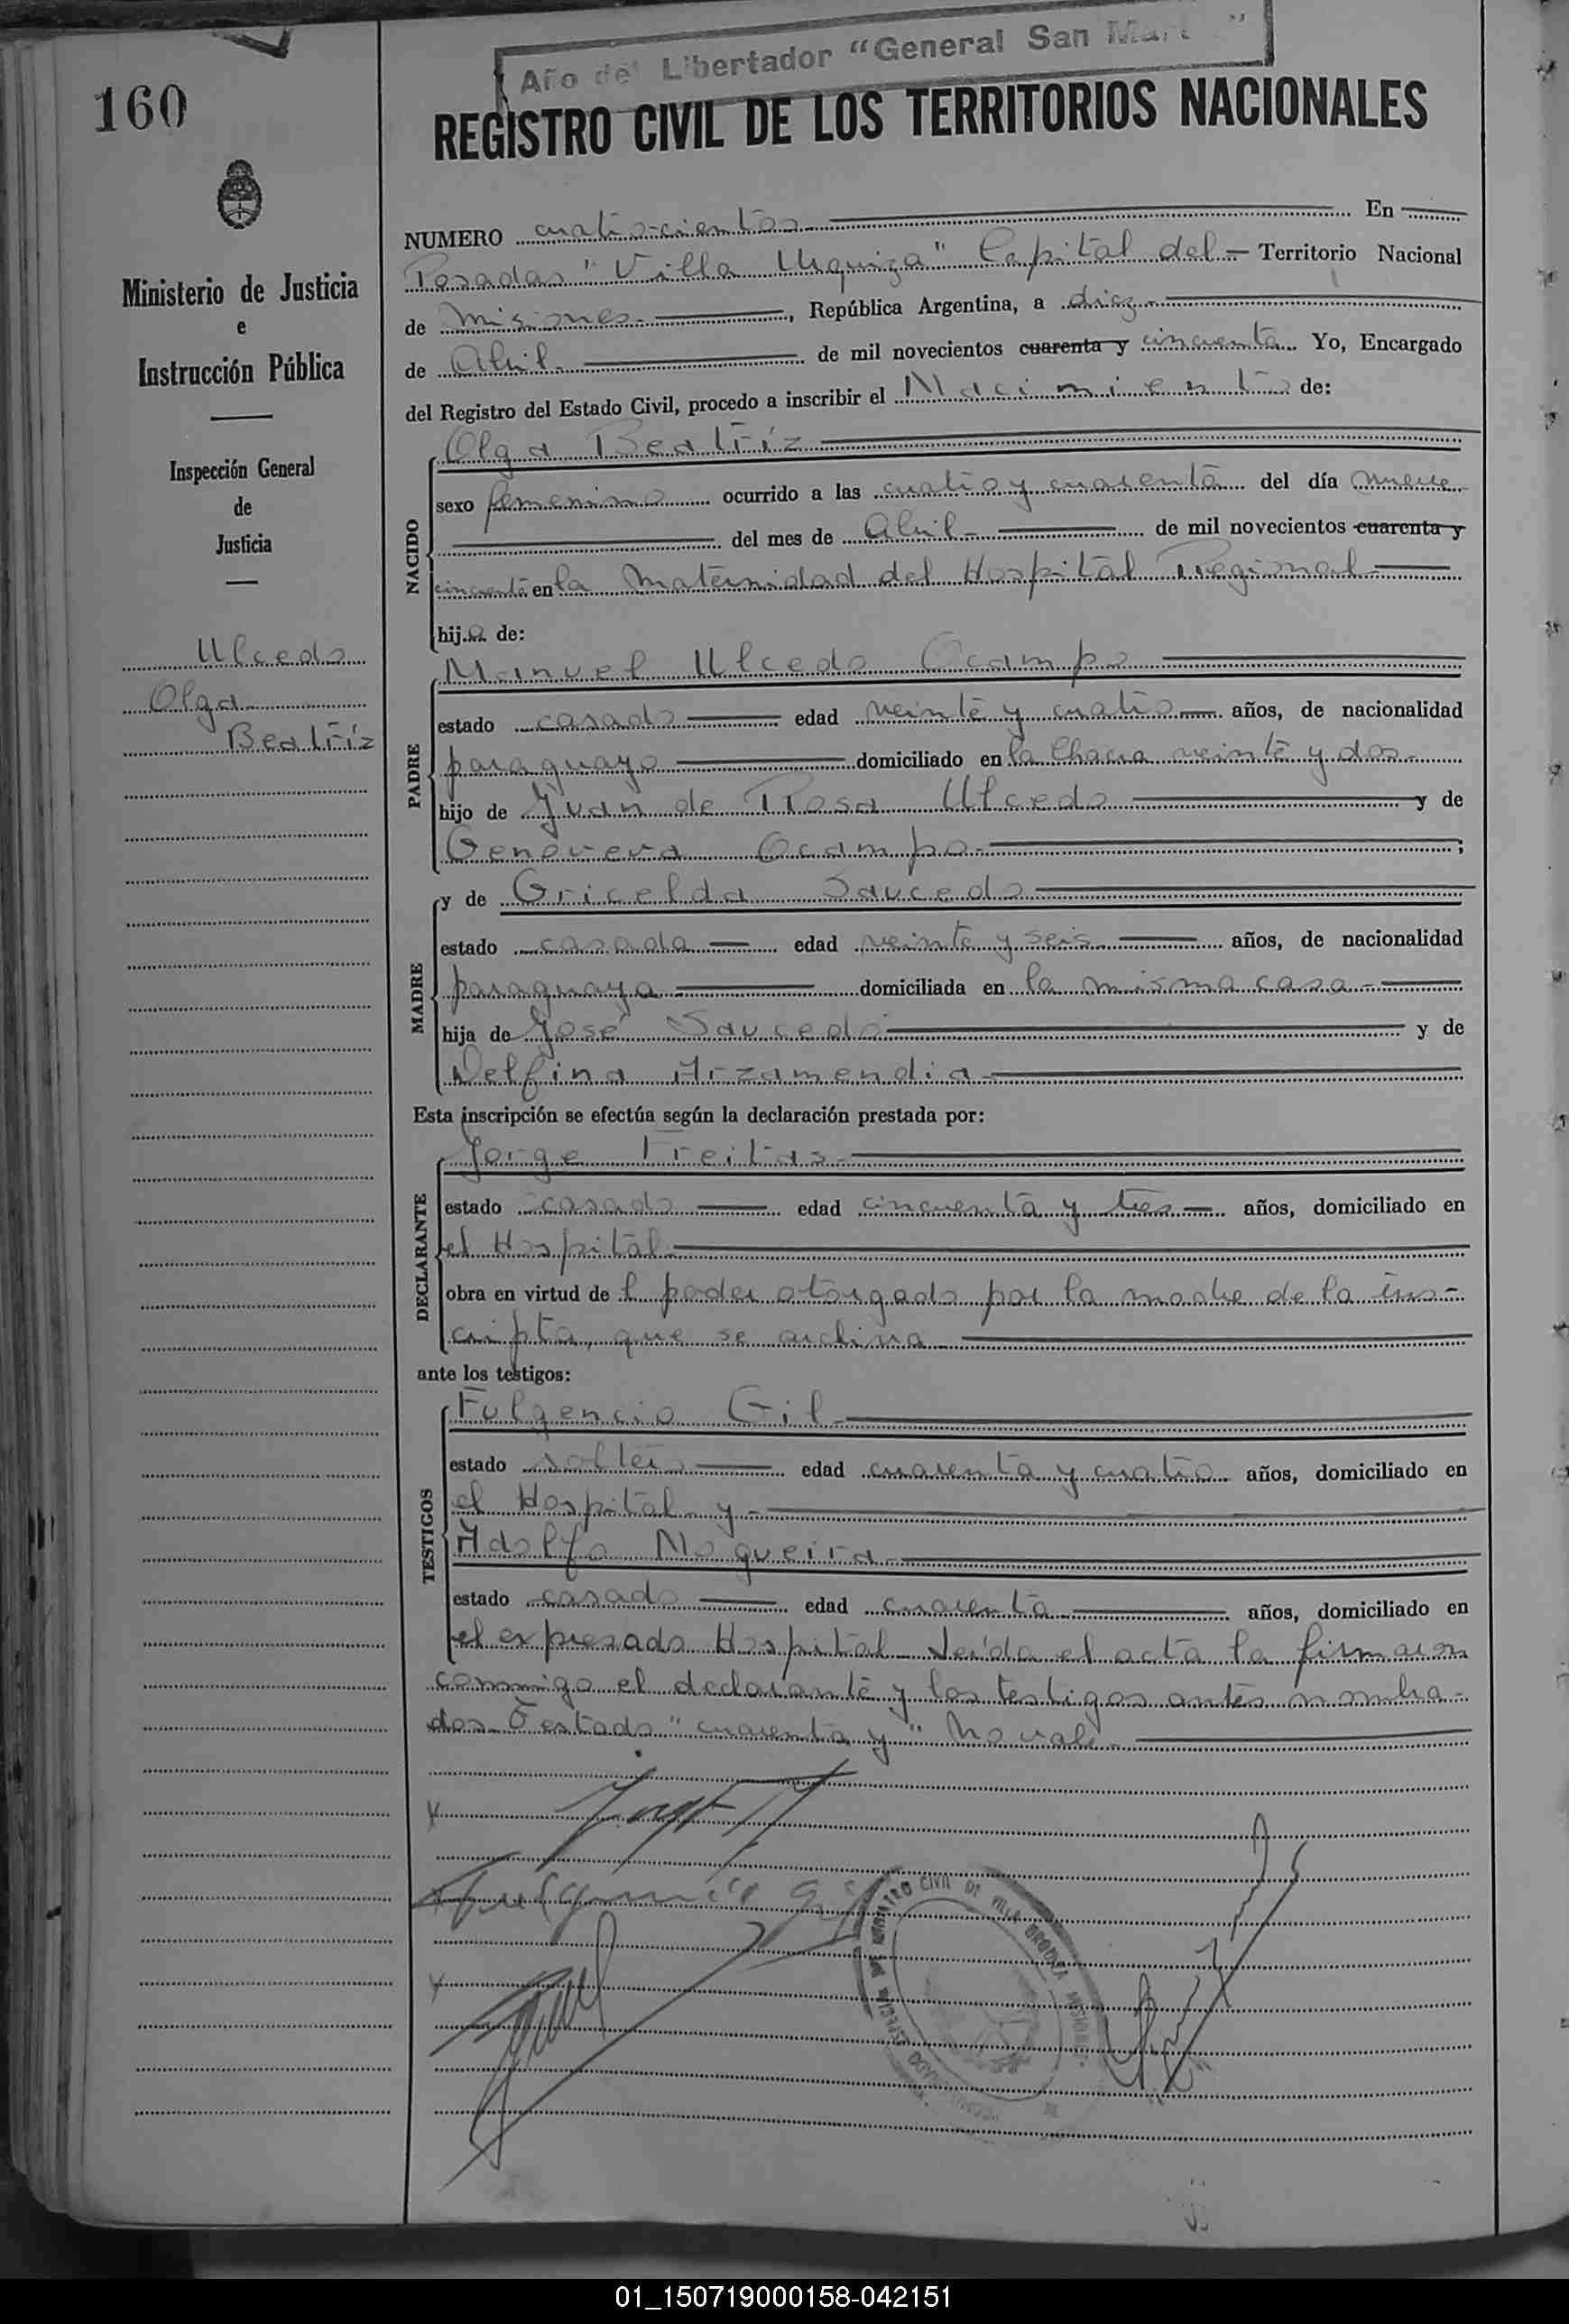 Año del Libertador "General San Martín"
160
REGISTRO CIVIL DE LOS TERRITORIOS NACIONALES
Ministerio de Justicia
e
Instrucción Pública
Inspección General
de
Justicia
Ulcedo
Olga
Beatríz
NUMERO cuatrocientos En
Posadas "Villa Urquiza" Capital del Territorio Nacional
de Misiones, República Argentina, a diez
de Abril de mil novecientos cuarenta y cincuenta Yo, Encargado
del Registro del Estado Civil, procedo a inscribir el Nacimiento de:
NACIDO
Olga Beatríz
sexo femenino ocurrido a las cuatro y cuarenta del día nueve
del mes de Abril de mil novecientos cuarenta y
cincuenta en la Maternidad del Hospital Regional
hija de:
PADRE
Manuel Ulcedo Ocampo
estado casado edad veinte y cuatro años, de nacionalidad
paraguayo domiciliado en la Chacra veinte y dos
hijo de Juan de Rosa Ulcedo y de
Genoveva Ocampo;
MADRE
y de Gricelda Saucedo
estado casada edad veinte y seis años, de nacionalidad
paraguaya domiciliada en la misma casa
hija de José Saucedo y de
Delfina Arzamendia
Esta inscripción se efectúa según la declaración prestada por:
DECLARANTE
Jorge Freitas
estado casado edad cincuenta y tres años, domiciliado en
el Hospital
obra en virtud del poder otorgado por la madre de la ins-
cripta, que se archiva
ante los testigos:
TESTIGOS
Fulgencio Gil
estado soltero edad cuarenta y cuatro años, domiciliado en
el Hospital y
Adolfo Nogueira
estado casado edad cuarenta años, domiciliado en
el expresado Hospital. Leída el acta la firmaron
conmigo el declarante y los testigos antes nombra-
dos. Testado "cuarenta y" No vale
Fulgencio Gil
REGISTRO CIVIL DE VILLA URQUIZA MISIONES
01_150719000158-042151